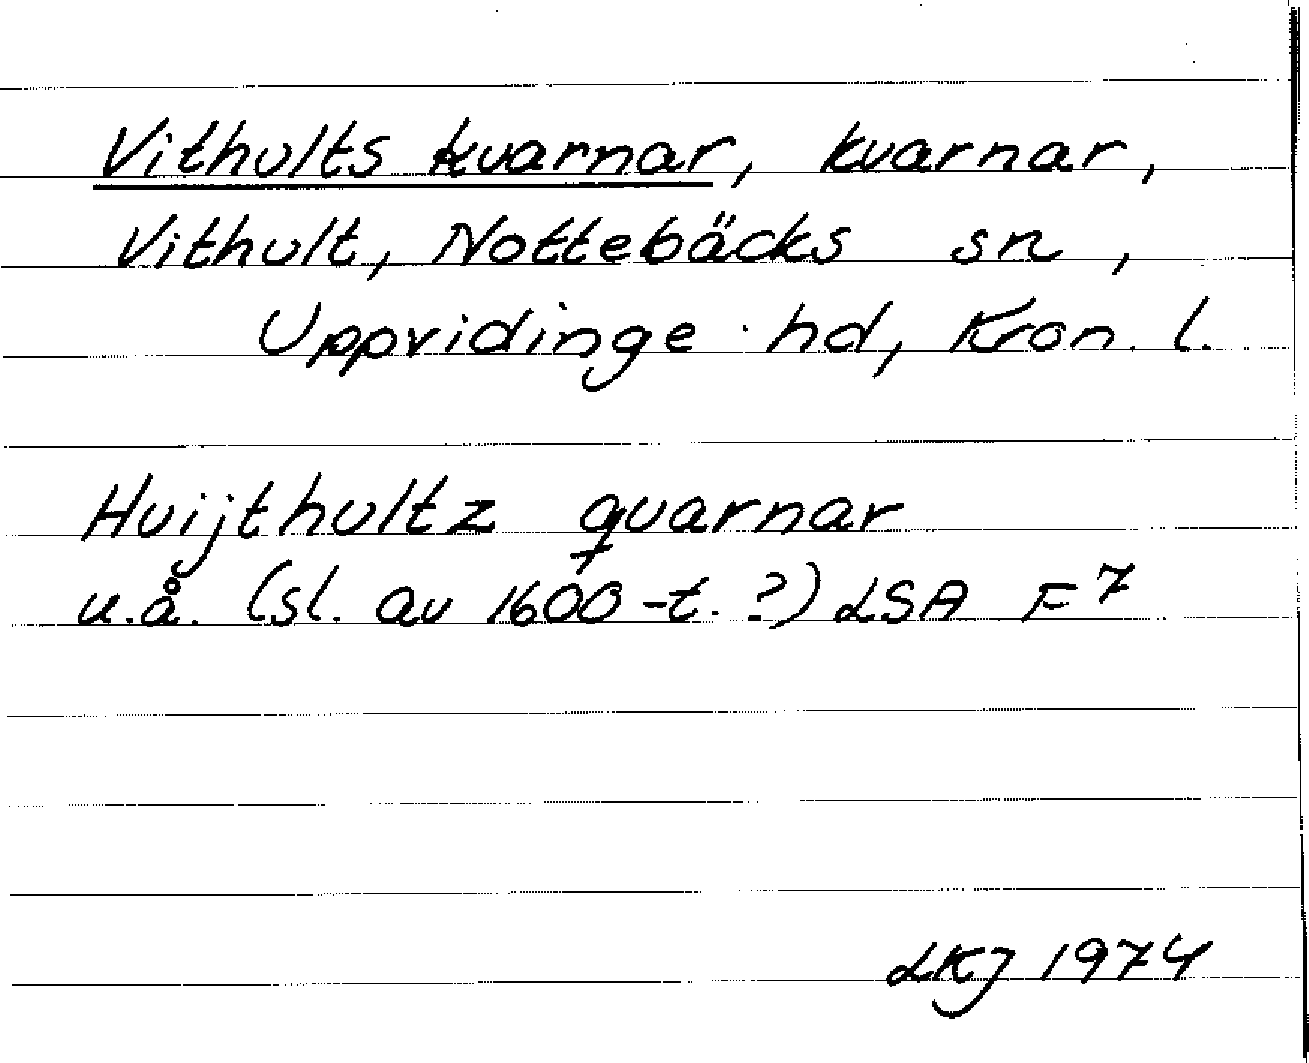 Vithults kvarnar, kvarnar,
Vithult, Nottebäcks sn,
Uppvidinge hd, Kron. l.
Huijthultz quarnar
u.å. (sl. av 1600-t. ?) LSA F7
LKJ 1974